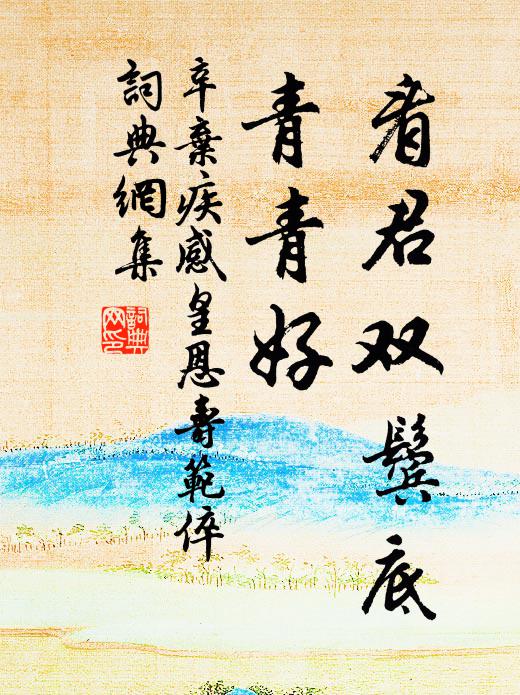 看君双鬓底
青青好
辛棄疾感皇恩壽範倅
詞典網集
詞典网印